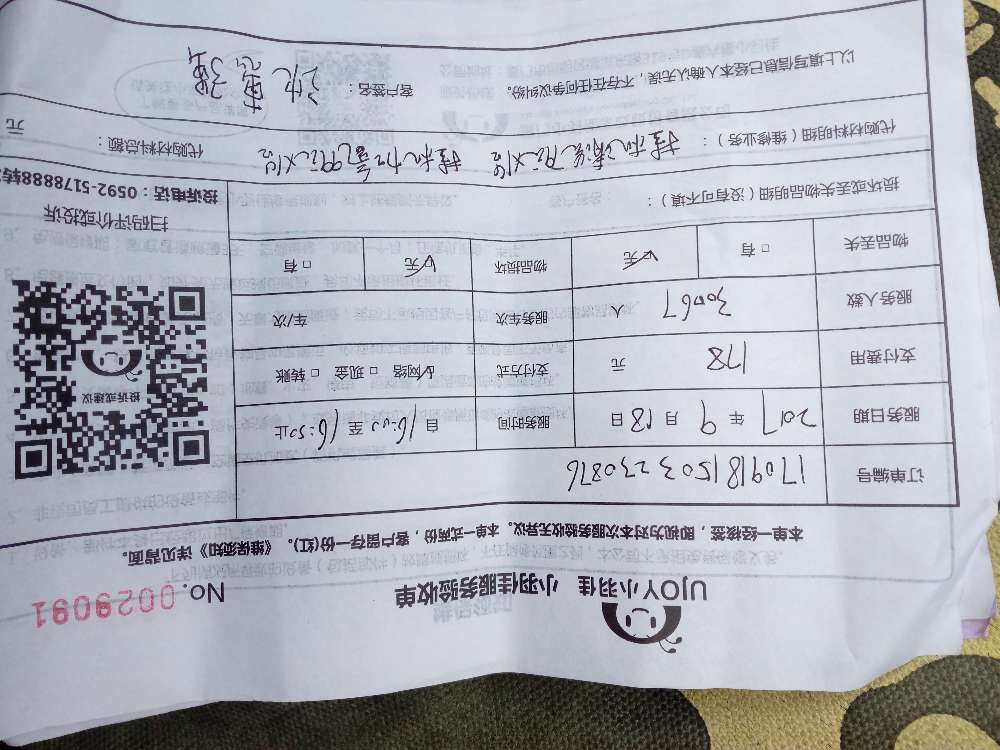 UJOY小羽佳 小羽佳服务验收单 No.0029091
本单一经核签，即视为对本次服务验收无异议。本单一式两份，客户留存一份(红)。《维保须知》详见背面。
订单编号 170918150323 0876
服务日期 2017 年 9 月 18 日 服务时间 自 16:00 至 16:50止
支付费用 178 元 支付方式 ☑网络 □ 现金 □ 转账
服务人数 30067 人 服务车次 车/次
物品丢失 □ 有 ☑无 物品损坏 ☑无 □ 有
投诉或建议
扫码评价或投诉
投诉电话：0592-5178888转
损坏或丢失物品明细（没有可不填）：
代购材料明细（维修业务）： 挂机清洗 挂机加氧 代购材料总额： 元
以上填写信息已经本人确认无误，不存在任何争议纠纷。 客户签名：